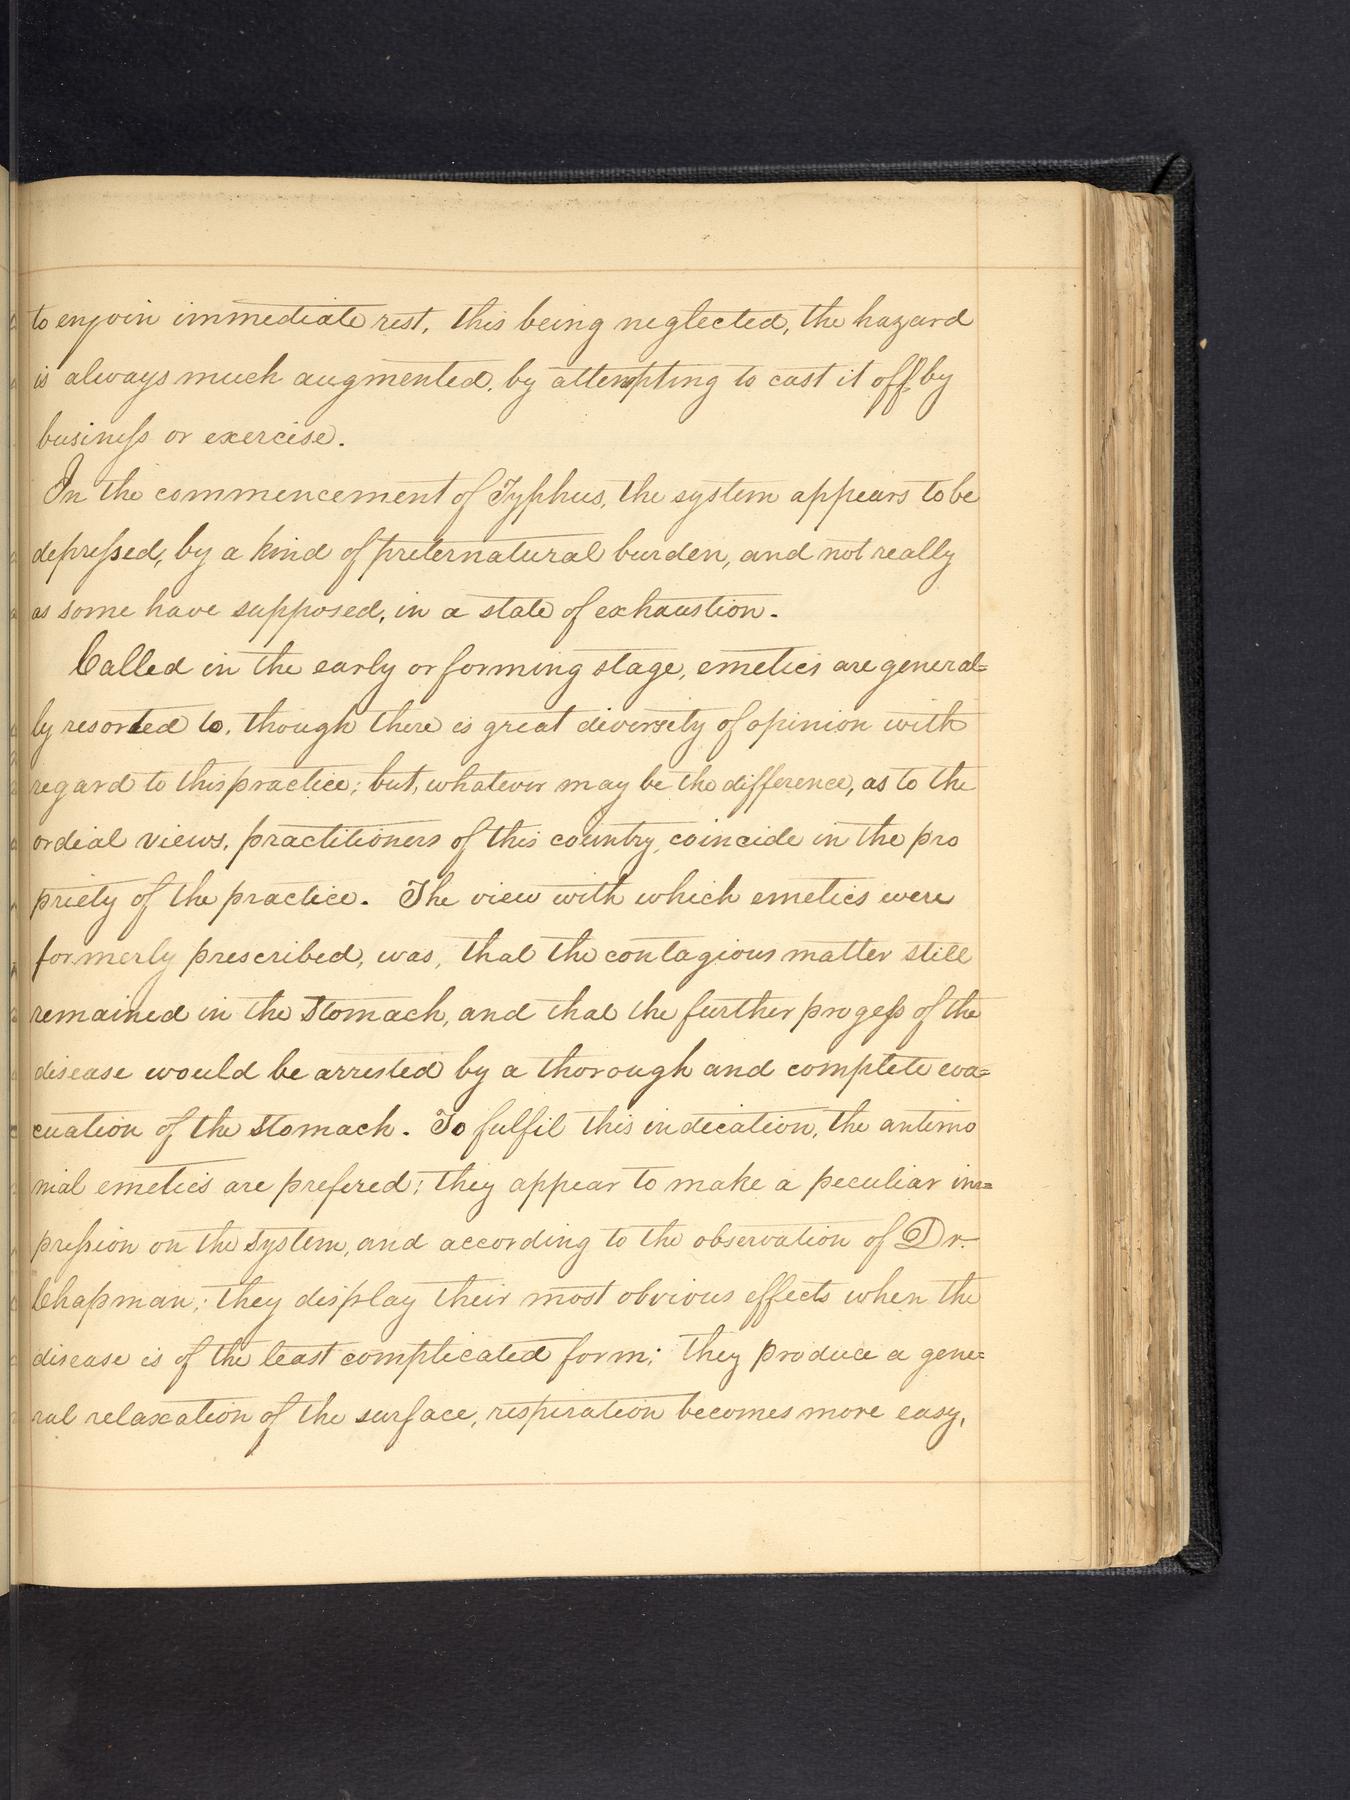 to enjoin immediate rest, this being neglected, the hazard
is always much augmented, by attempting to cast it off by
business or exercise.
In the commencement of Typhus, the system appears to be
depressed, by a kind of preternatural burden, and not really
as some have supposed, in a state of exhaustion.
Called in the early or forming stage, emetics are general=
ly resorted to, though there is great diversety of opinion with
regard to this practice; but, whatever may be the difference, as to the
ordial views, practitioners of this country, coincide in the pro
priety of the practice. The view with which emetics were
formerly prescribed, was, that the contagious matter still
remained in the Stomach, and that the further progess of the
disease would be arrested by a thorough and complete eva=
cuation of the Stomach. To fulfil this indication, the antimo
nial emetics are prefered; they appear to make a peculiar im=
pression on the System, and according to the observation of Dr.
Chapman; they display their most obvious effects when the
disease is of the least complicated form; they produce a gene=
ral relaxation of the surface, respiration becomes more easy,